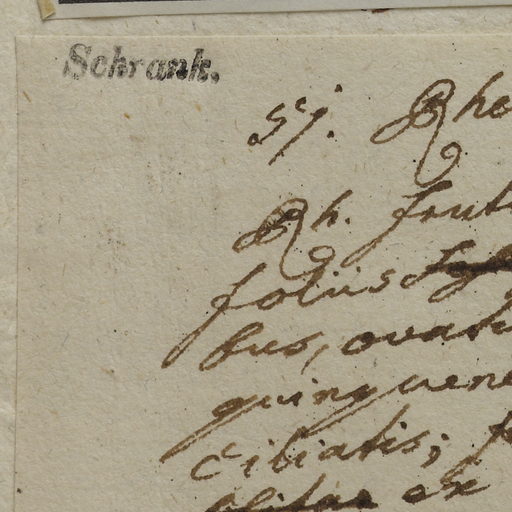 Schrank.
Sj. Rhe
Rh. frut
foliis
bus, ovat
quinquene
ciliatis; f
ex